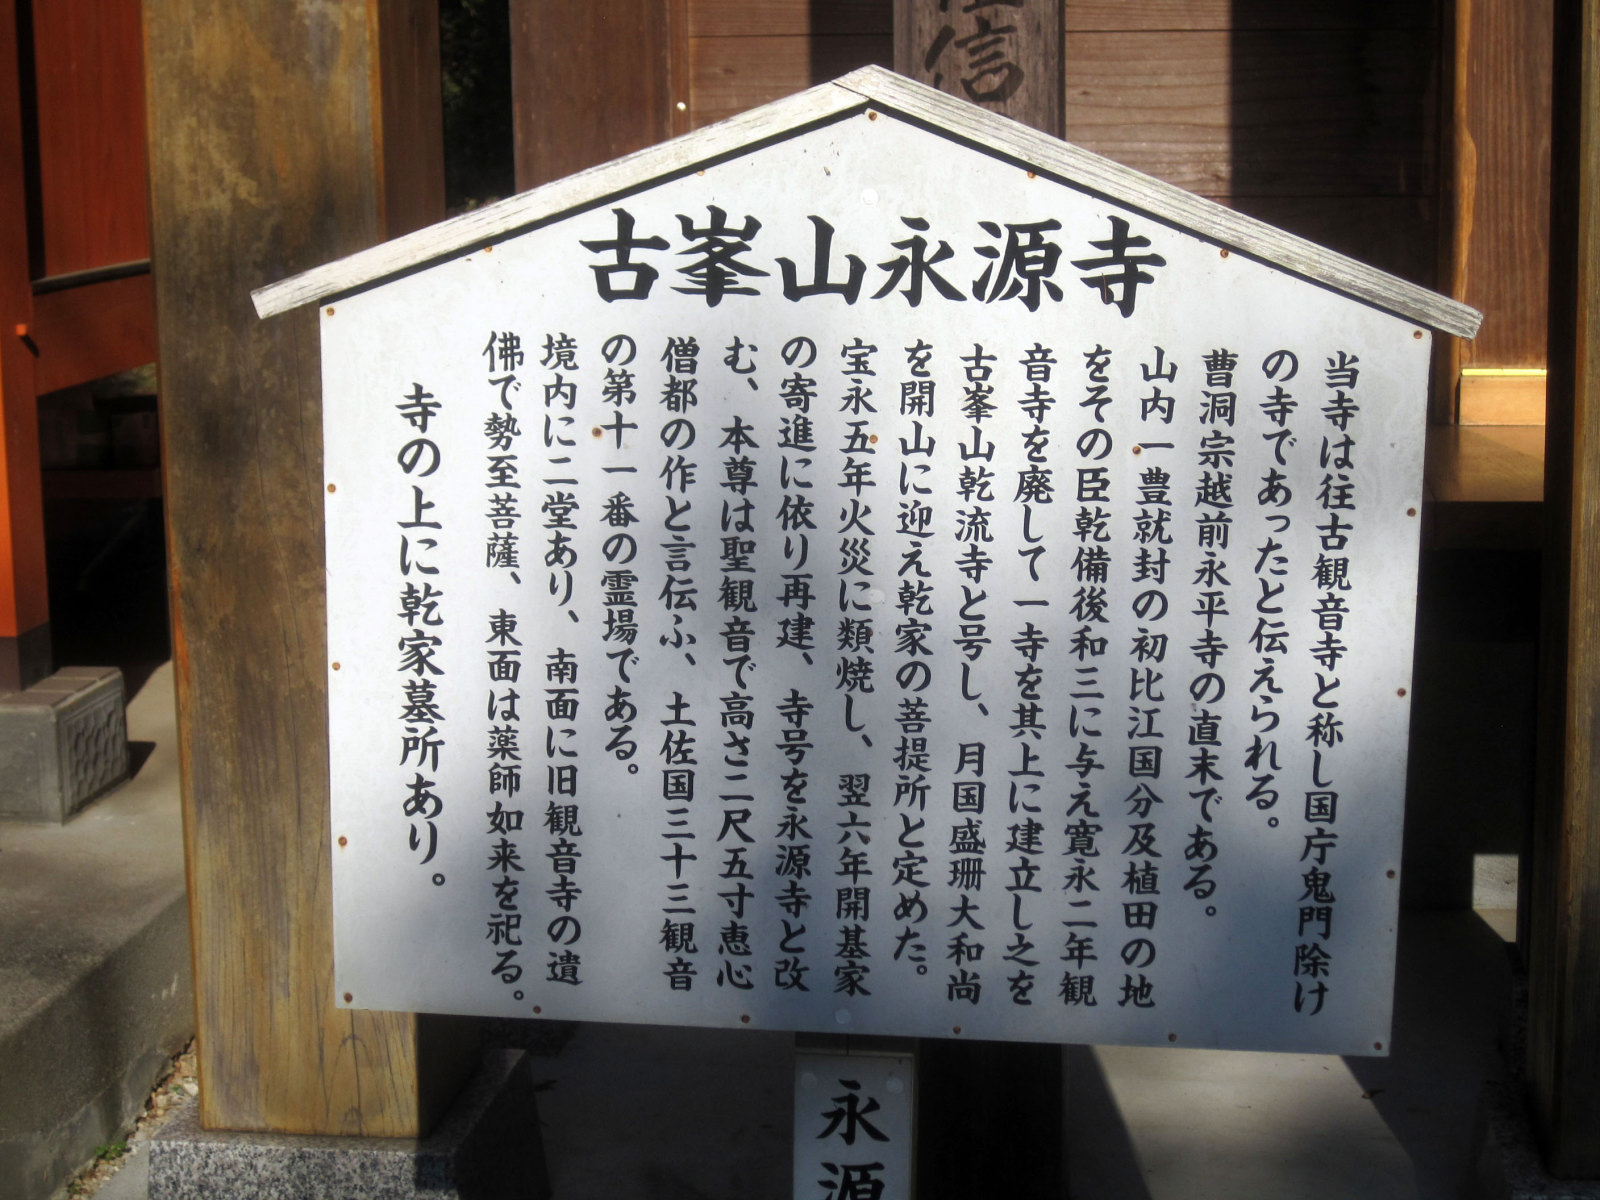 信
古峯山永源寺
当寺は往古観音寺と称し国庁鬼門除け
の寺であったと伝えられる。
曹洞宗越前永平寺の直末である。
山内一豊就封の初比江国分及植田の地
をその臣乾備後和三に与え寛永二年観
音寺を廃して一寺を其上に建立し之を
古峯山乾流寺と号し、月国盛珊大和尚
を開山に迎え乾家の菩提所と定めた。
宝永五年火災に類焼し、翌六年開基家
の寄進に依り再建、寺号を永源寺と改
む、本尊は聖観音で高さ二尺五寸恵心
僧都の作と言伝ふ、土佐国三十三観音
の第十一番の霊場である。
境内に二堂あり、南面に旧観音寺の遺
佛で勢至菩薩、東面は薬師如来を祀る。
寺の上に乾家墓所あり。
永源